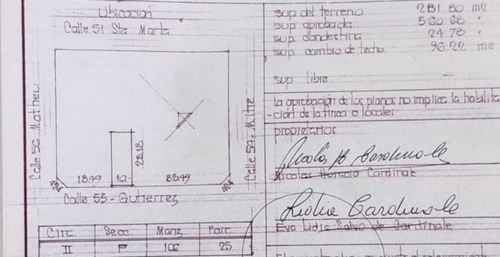 Ubicación
Calle 51 Sta. Marta
Calle 56 Matheu
Calle 59 - Mitre
28.18
18.99 10.- 88.99
Calle 53 - Gutierrez
Circ. Secc. Manz. Parc.
II F 106 25
sup. del terreno 281.80 m2
sup. aprobada
sup. clandestina 24.78 "
sup. cambio de techo 96.22 m2
sup. libre
la aprobación de los planos no implica la habilita
-ción de la finca o locales
propietarios
Nicolas Horacio Cardinale
Lidia Cardinale
Eva Lidia Salvo de Cardinale